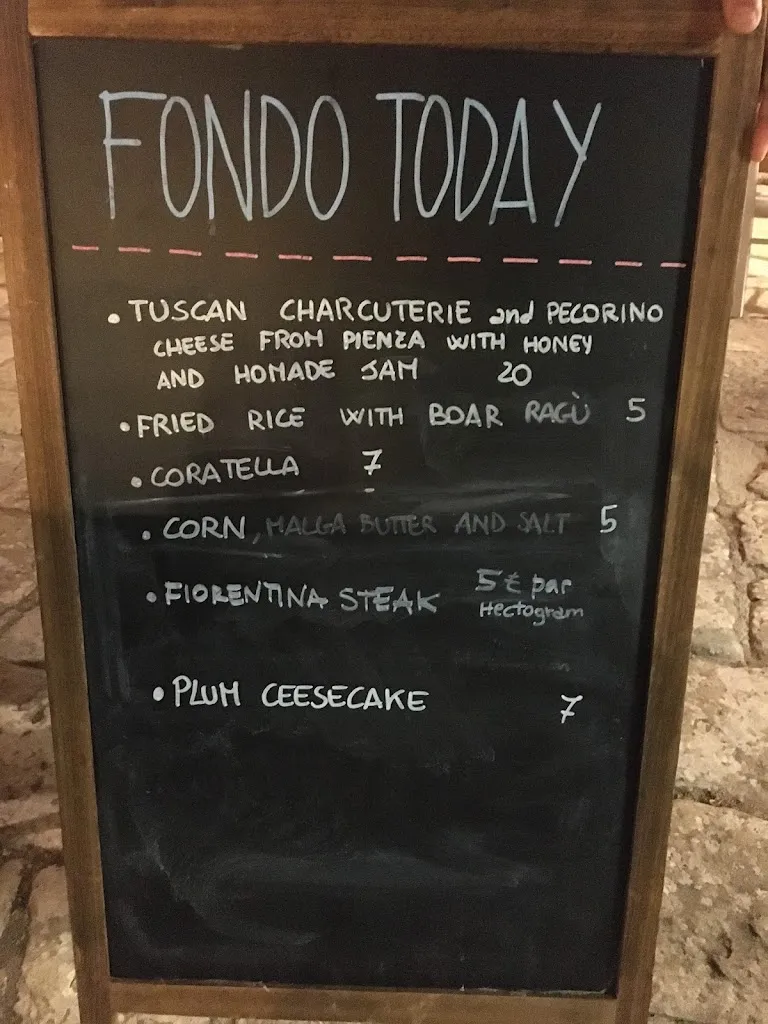 FONDO TODAY
• TUSCAN CHARCUTERIE and PECORINO
CHEESE FROM PIENZA WITH HONEY
AND HOMADE JAM 20
• FRIED RICE WITH BOAR RAGÙ 5
• CORATELLA 7
• CORN, MALGA BUTTER AND SALT 5
• FIORENTINA STEAK 5€ par
Hectogram
• PLUM CEESECAKE 7